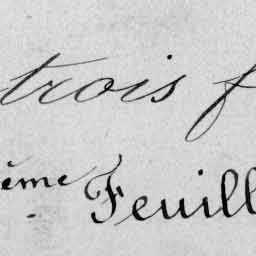 trois f
ème Feuill